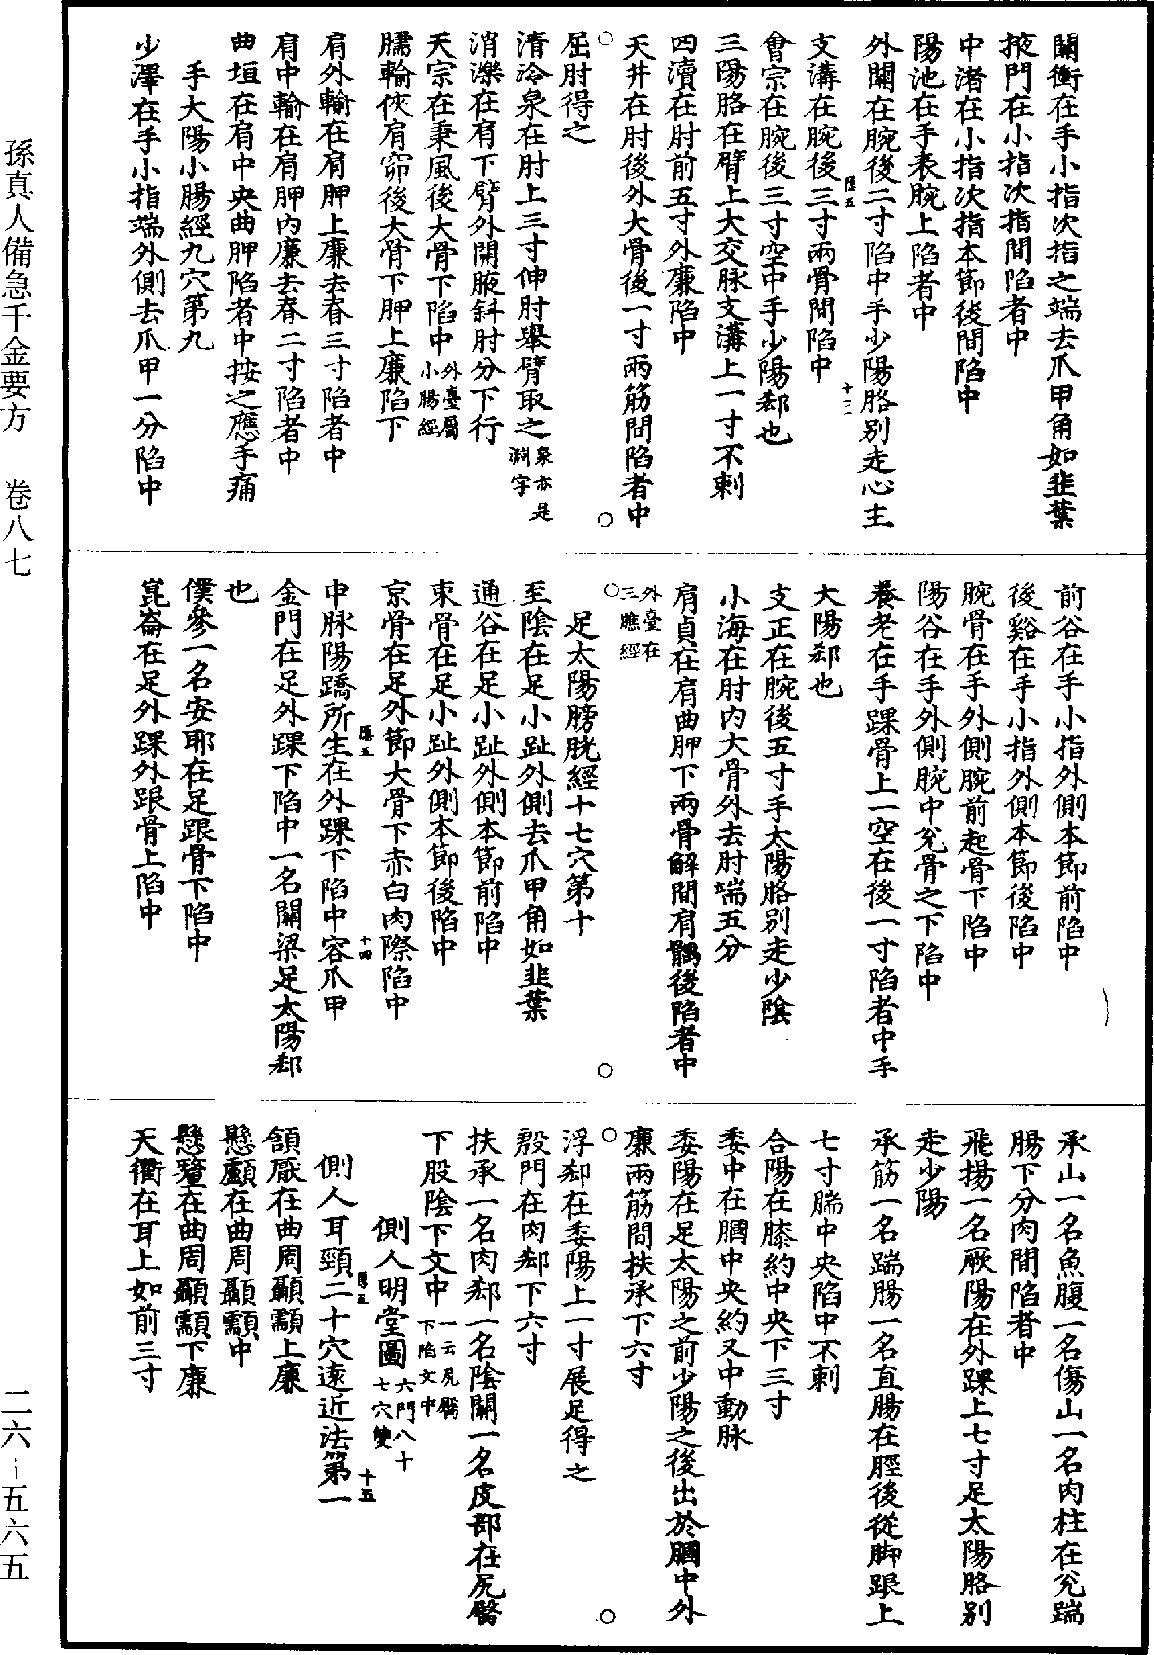 關衝在手小指次指之端去爪甲角如韭葉
掖門在小指次指間陷者中
中渚在小指次指本節後間陷中
陽池在手表腕上陷者中
外關在腕後二寸陷中手少陽胳別走心主
支溝在腕後三寸兩骨間陷中
會宗在腕後三寸空中手少陽郄也
三陽胳在臂上大交脉支溝上一寸不刺
四瀆在肘前五寸外廉陷中
天井在肘後外大骨後一寸兩筋間陷者中
屈肘得之
清冷泉在肘上三寸伸肘舉臂取之泉亦是淵字
消濼在肩下臂外開腋斜肘分下行
天宗在秉風後大骨下陷中外臺屬小腸經
臑輸俠肩窌後大骨下胛上廉陷下
肩外輸在肩胛上廉去脊三寸陷者中
肩中輸在肩胛內廉去脊二寸陷者中
曲垣在肩中央曲胛陷者中按之應手痛
手大陽小腸經九穴第九
少澤在手小指端外側去爪甲一分陷中
前谷在手小指外側本節前陷中
後谿在手小指外側本節後陷中
腕骨在手外側腕前起骨下陷中
陽谷在手外側腕中兌骨之下陷中
養老在手踝骨上一空在後一寸陷者中手
大陽郄也
支正在腕後五寸手太陽胳別走少陰
小海在肘內大骨外去肘端五分
肩貞在肩曲胛下兩骨解間肩髃後陷者中
外臺在三膲經
足太陽膀胱經十七穴第十
至陰在足小趾外側去爪甲角如韭葉
通谷在足小趾外側本節前陷中
束骨在足小趾外側本節後陷中
京骨在足外節大骨下赤白肉際陷中
中脉陽蹻所生在外踝下陷中容爪甲
金門在足外踝下陷中一名關梁足太陽郄
也
僕參一名安耶在足跟骨下陷中
崑崙在足外踝外跟骨上陷中
承山一名魚腹一名傷山一名肉柱在兌踹
腸下分肉間陷者中
飛揚一名厥陽在外踝上七寸足太陽胳別
走少陽
承筋一名踹腸一名直腸在脛後從脚跟上
七寸腨中央陷中不刺
合陽在膝約中央下三寸
委中在膕中央約文中動脉
委陽在足太陽之前少陽之後出於膕中外
廉兩筋間扶承下六寸
浮郄在委陽上一寸展足得之
殷門在肉郄下六寸
扶承一名肉郄一名陰關一名皮部在尻臀
下股陰下文中一云尻臀下陷文中
側人明堂圖六門八十七穴雙
側人耳頸二十穴遠近法第一
頷厭在曲周顳顬上廉
懸顱在曲周顳顬中
懸釐在曲周顳顬下廉
天衢在耳上如前三寸
孫真人備急千金要方 卷八七
二六-五六五